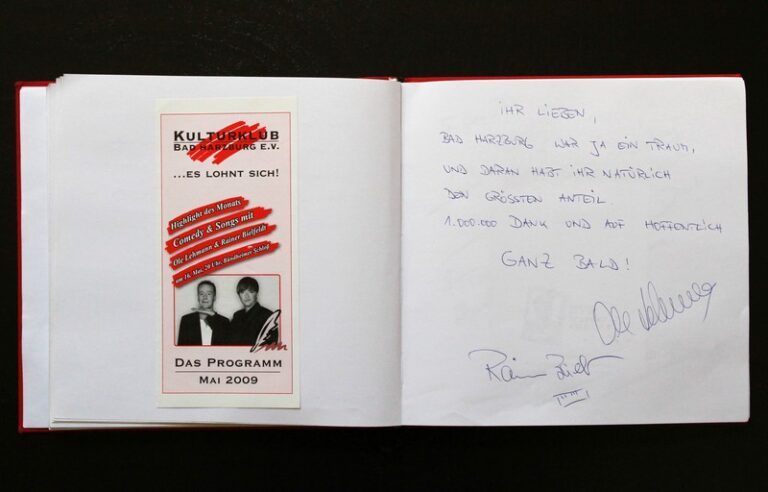 KULTURKLUB
BAD HARZBURG E.V.
...ES LOHNT SICH!
Highlight des Monats
Comedy & Songs mit
Ole Lehmann & Rainer Bielfeldt
am 16. Mai, 20 Uhr, Bündheimer Schloß
DAS PROGRAMM
MAI 2009
IHR LIEBEN,
BAD HARZBURG WAR JA EIN TRAUM,
UND DARAN HABT IHR NATÜRLICH
DEN GRÖSSTEN ANTEIL.
1.000.000 DANK UND AUF HOFFENTLICH
GANZ BALD!
Ole Lehmann
Rainer